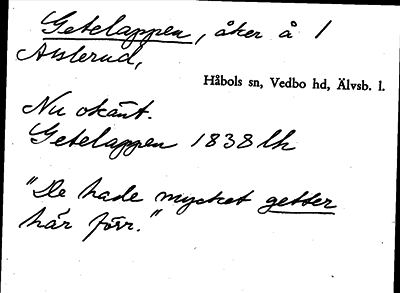 Getelappen, åker å 1
Aslerud,
Håbols sn, Vedbo hd, Älvsb. l.
Nu okänt.
Getelappen 1838 lh
"De hade mycket getter
här förr."